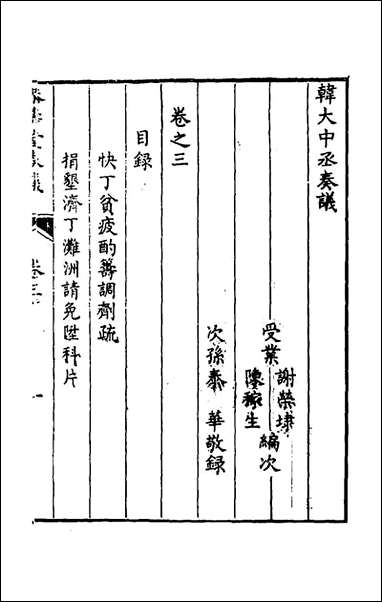 韓大中丞奏議
受業 謝榮埭 陳稼生 編次
次孫泰華敬録
卷之三
目録
快丁貧疲酌籌調劑疏
捐墾濟丁灘洲請免陞科片
卷三
一